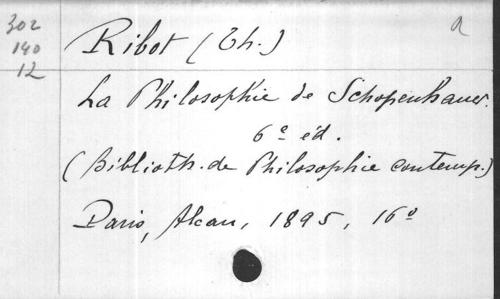 302
140
12
a
Ribot (Th.)
La Philosophie de Schopenhauer.
6e éd.
(Biblioth. de Philosophie contemp.)
Paris, Alcan, 1895, 16o